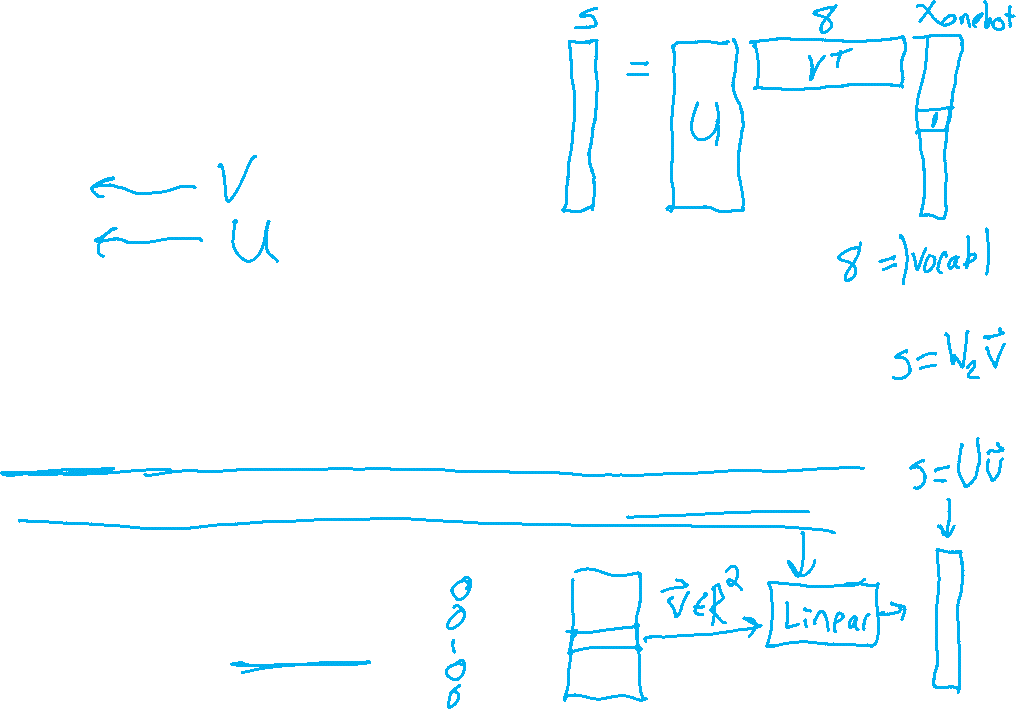 S 8 Xonehot
= U V^T 1
V
U
8 = |vocab|
S = W₂ v⃗
S = U v⃗
0
0
1
0
0
v⃗ ∈ R²
Linear